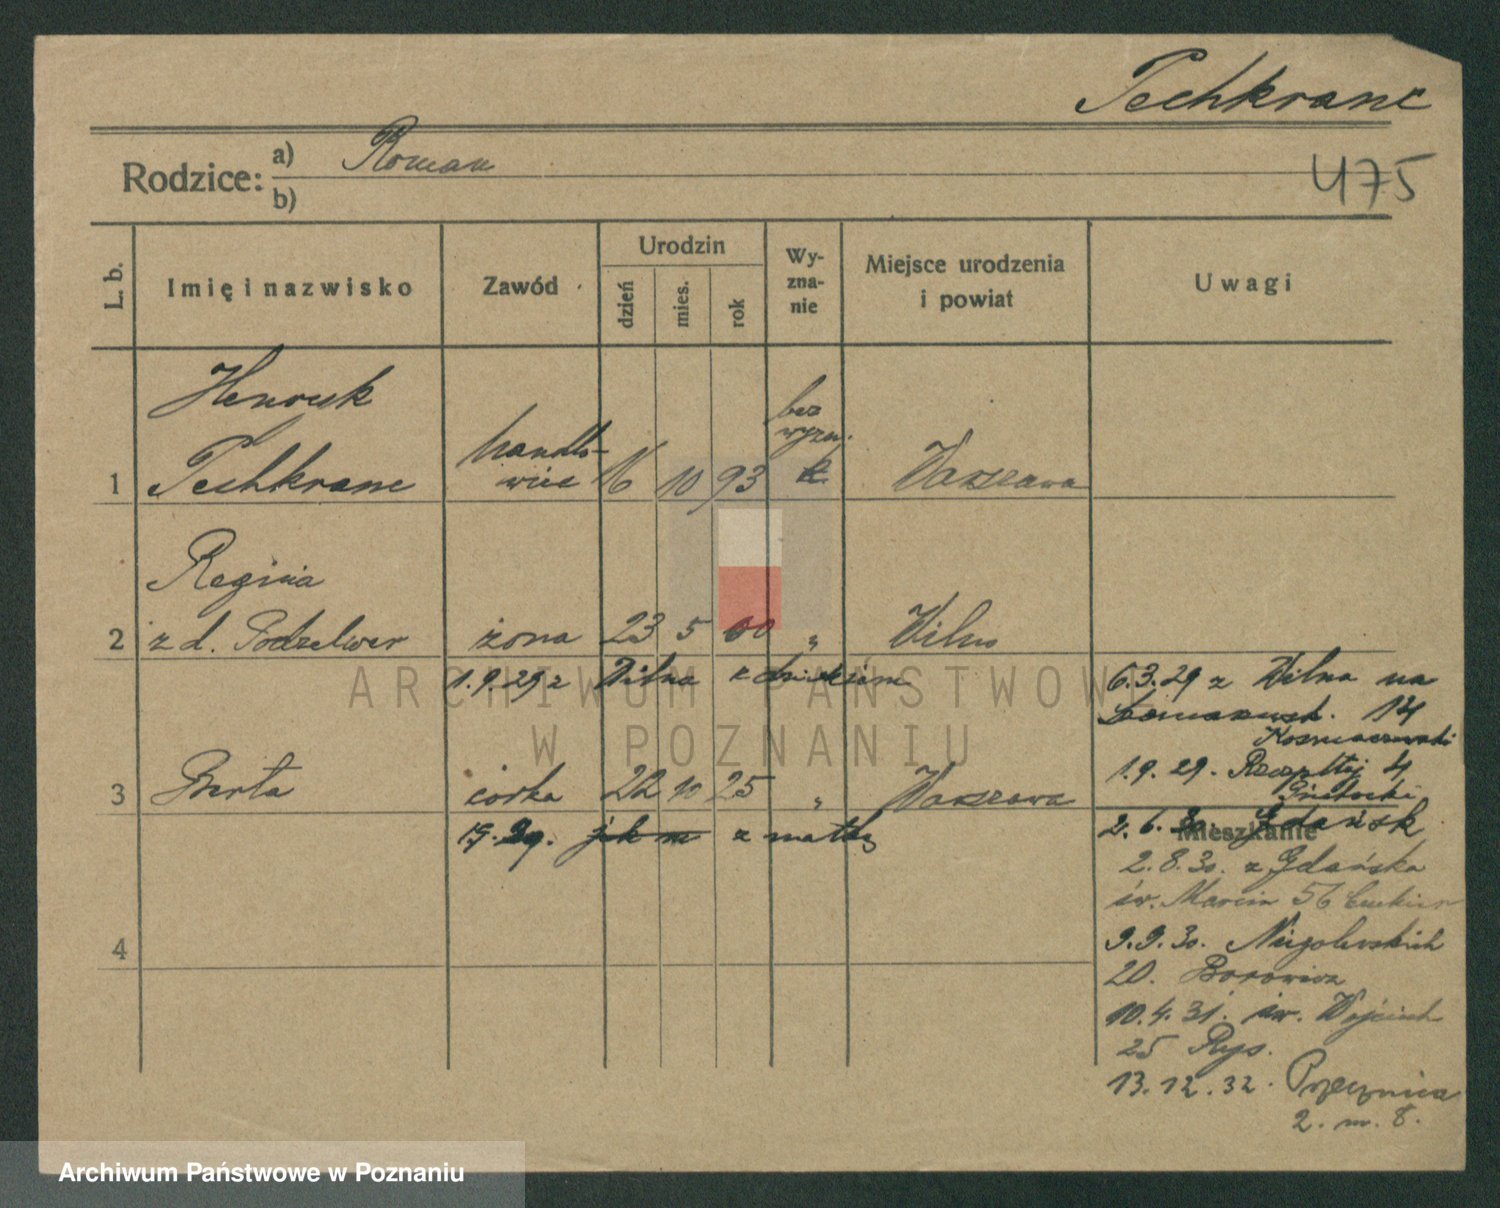 Pechkranc
Rodzice: a) Roman
b)
475
L. b.
Imię i nazwisko
Zawód
Urodzin
dzień
mies.
rok
Wy-
zna-
nie
Miejsce urodzenia
i powiat
Uwagi
Henryk
1 Pechkranc handlo-
wiec 16 10 93 bez
wyzn. Warszawa
Regina
2 z d. Podzelwer żona 23 5 00 " Wilno
1.9.29 z Wilna z dzieckiem
6.3.29 z Wilna na
14
1.9.29. Rzeczpltej 4
3 Berta córka 22 10 25 " Warszawa
1.9.29. z matką
2.6.30. Gdańsk
Mieszkanie
2.8.30. z Gdańska
św. Marcin 56
9.9.30. Niegolewskich
20. Borowicz
4
10.4.31. św. Wojciech
25 Rys.
13.12.32. Przecznica
2. m. 8.
ARCHIWUM PAŃSTWOWE
W POZNANIU
Archiwum Państwowe w Poznaniu